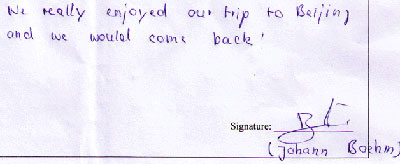 We really enjoyed our trip to Beijing
and we would come back!
Signature:
(Johann Boehm)